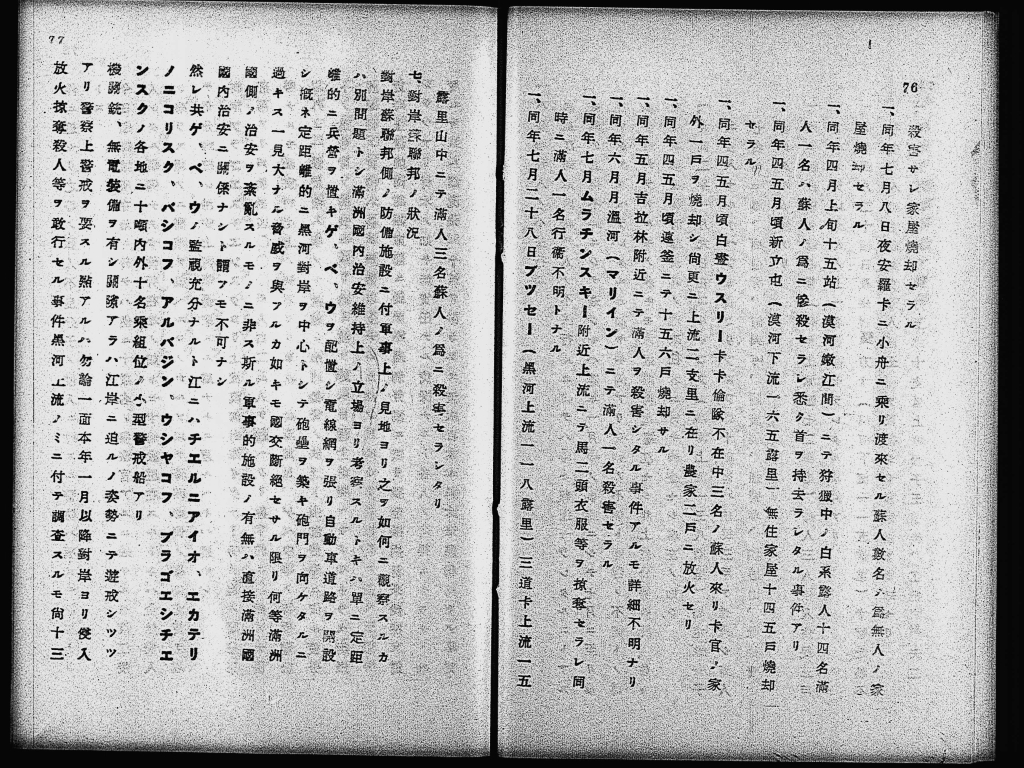 76
殺害サレ家屋燒却セラル
一、同年七月八日夜安羅卡ニ小舟ニ乘リ渡來セル蘇人數名ノ爲無人ノ家
屋燒却セラル
一、同年四月上旬十五站(漠河嫩江間)ニテ狩獵中ノ白系露人十四名滿
人一名ハ蘇人ノ爲ニ慘殺セラレ悉タ首ヲ持去ラレタル事件アリ
一、同年四五月頃新立屯(漠河下流一六五露里)無住家屋十四五戸燒却
セラル
一、同年四五月頃白壹ウスリー卡卡倫ノ不在中三名ノ蘇人來リ卡官ノ家
外一戸ヲ燒却シ尚更ニ上流二支里ニ在リ農家二戸ニ放火セリ
一、同年四五月頃連釜ニテ十五六戸燒却サル
一、同年五月吉拉林附近ニテ滿人ヲ殺害シタル事件アルモ詳細不明ナリ
一、同年六月溫河(マリイン)ニテ滿人一名殺害セラル
一、同年七月ムラチンスキー附近上流ニテ馬二頭衣服等ヲ掠奪セラレ同
時ニ滿人一名行衞不明トナル
一、同年七月二十八日ブツセー(黑河上流一一八露里)三道卡上流一五
77
露里山中ニテ滿人三名蘇人ノ爲ニ殺害セラレタリ
七、對岸蘇聯邦ノ狀況
對岸蘇聯邦側ノ防備施設ニ付軍事上ノ見地ヨリ之ヲ如何ニ觀察スルカ
ハ別問題トシ滿洲國內治安維持上ノ立場ヨリ考察スルトキハ單ニ定距
離的ニ兵營ヲ置キゲ、ペ、ウヲ配置シ電線網ヲ張リ自動車道路ヲ開設
シ概ネ定距離的ニ黑河對岸ヲ中心トシテ砲壘ヲ築キ砲門ヲ向ケタルニ
過キス一見大ナル脅威ヲ與フルカ如キモ國交斷絕セサル限リ何等滿洲
國側ノ治安ヲ紊亂スルモノニ非ス斯ル軍事的施設ノ有無ハ直接滿洲國
國內治安ニ關係ナシト謂フモ不可ナシ
然レ共ゲ、ペ、ウノ監視充分ナルト江ニハチエルニアイオ、エカテリ
ノニコリスク、パシコフ、アルバジン、ウシヤコフ、ブラゴエシチエ
ンスクノ各地ニ十噸內外十名乘組位ノ小型警戒船アリ
機關銃、無電裝備ヲ有シ關頭アラハ江岸ニ迫ルノ姿勢ニテ遊戒シツツ
アリ警察上警戒ヲ要スル點アルハ勿論一面本年一月以降對岸ヨリ侵入
放火掠奪殺人等ヲ敢行セル事件黑河上流ノミニ付テ調査スルモ尚十三